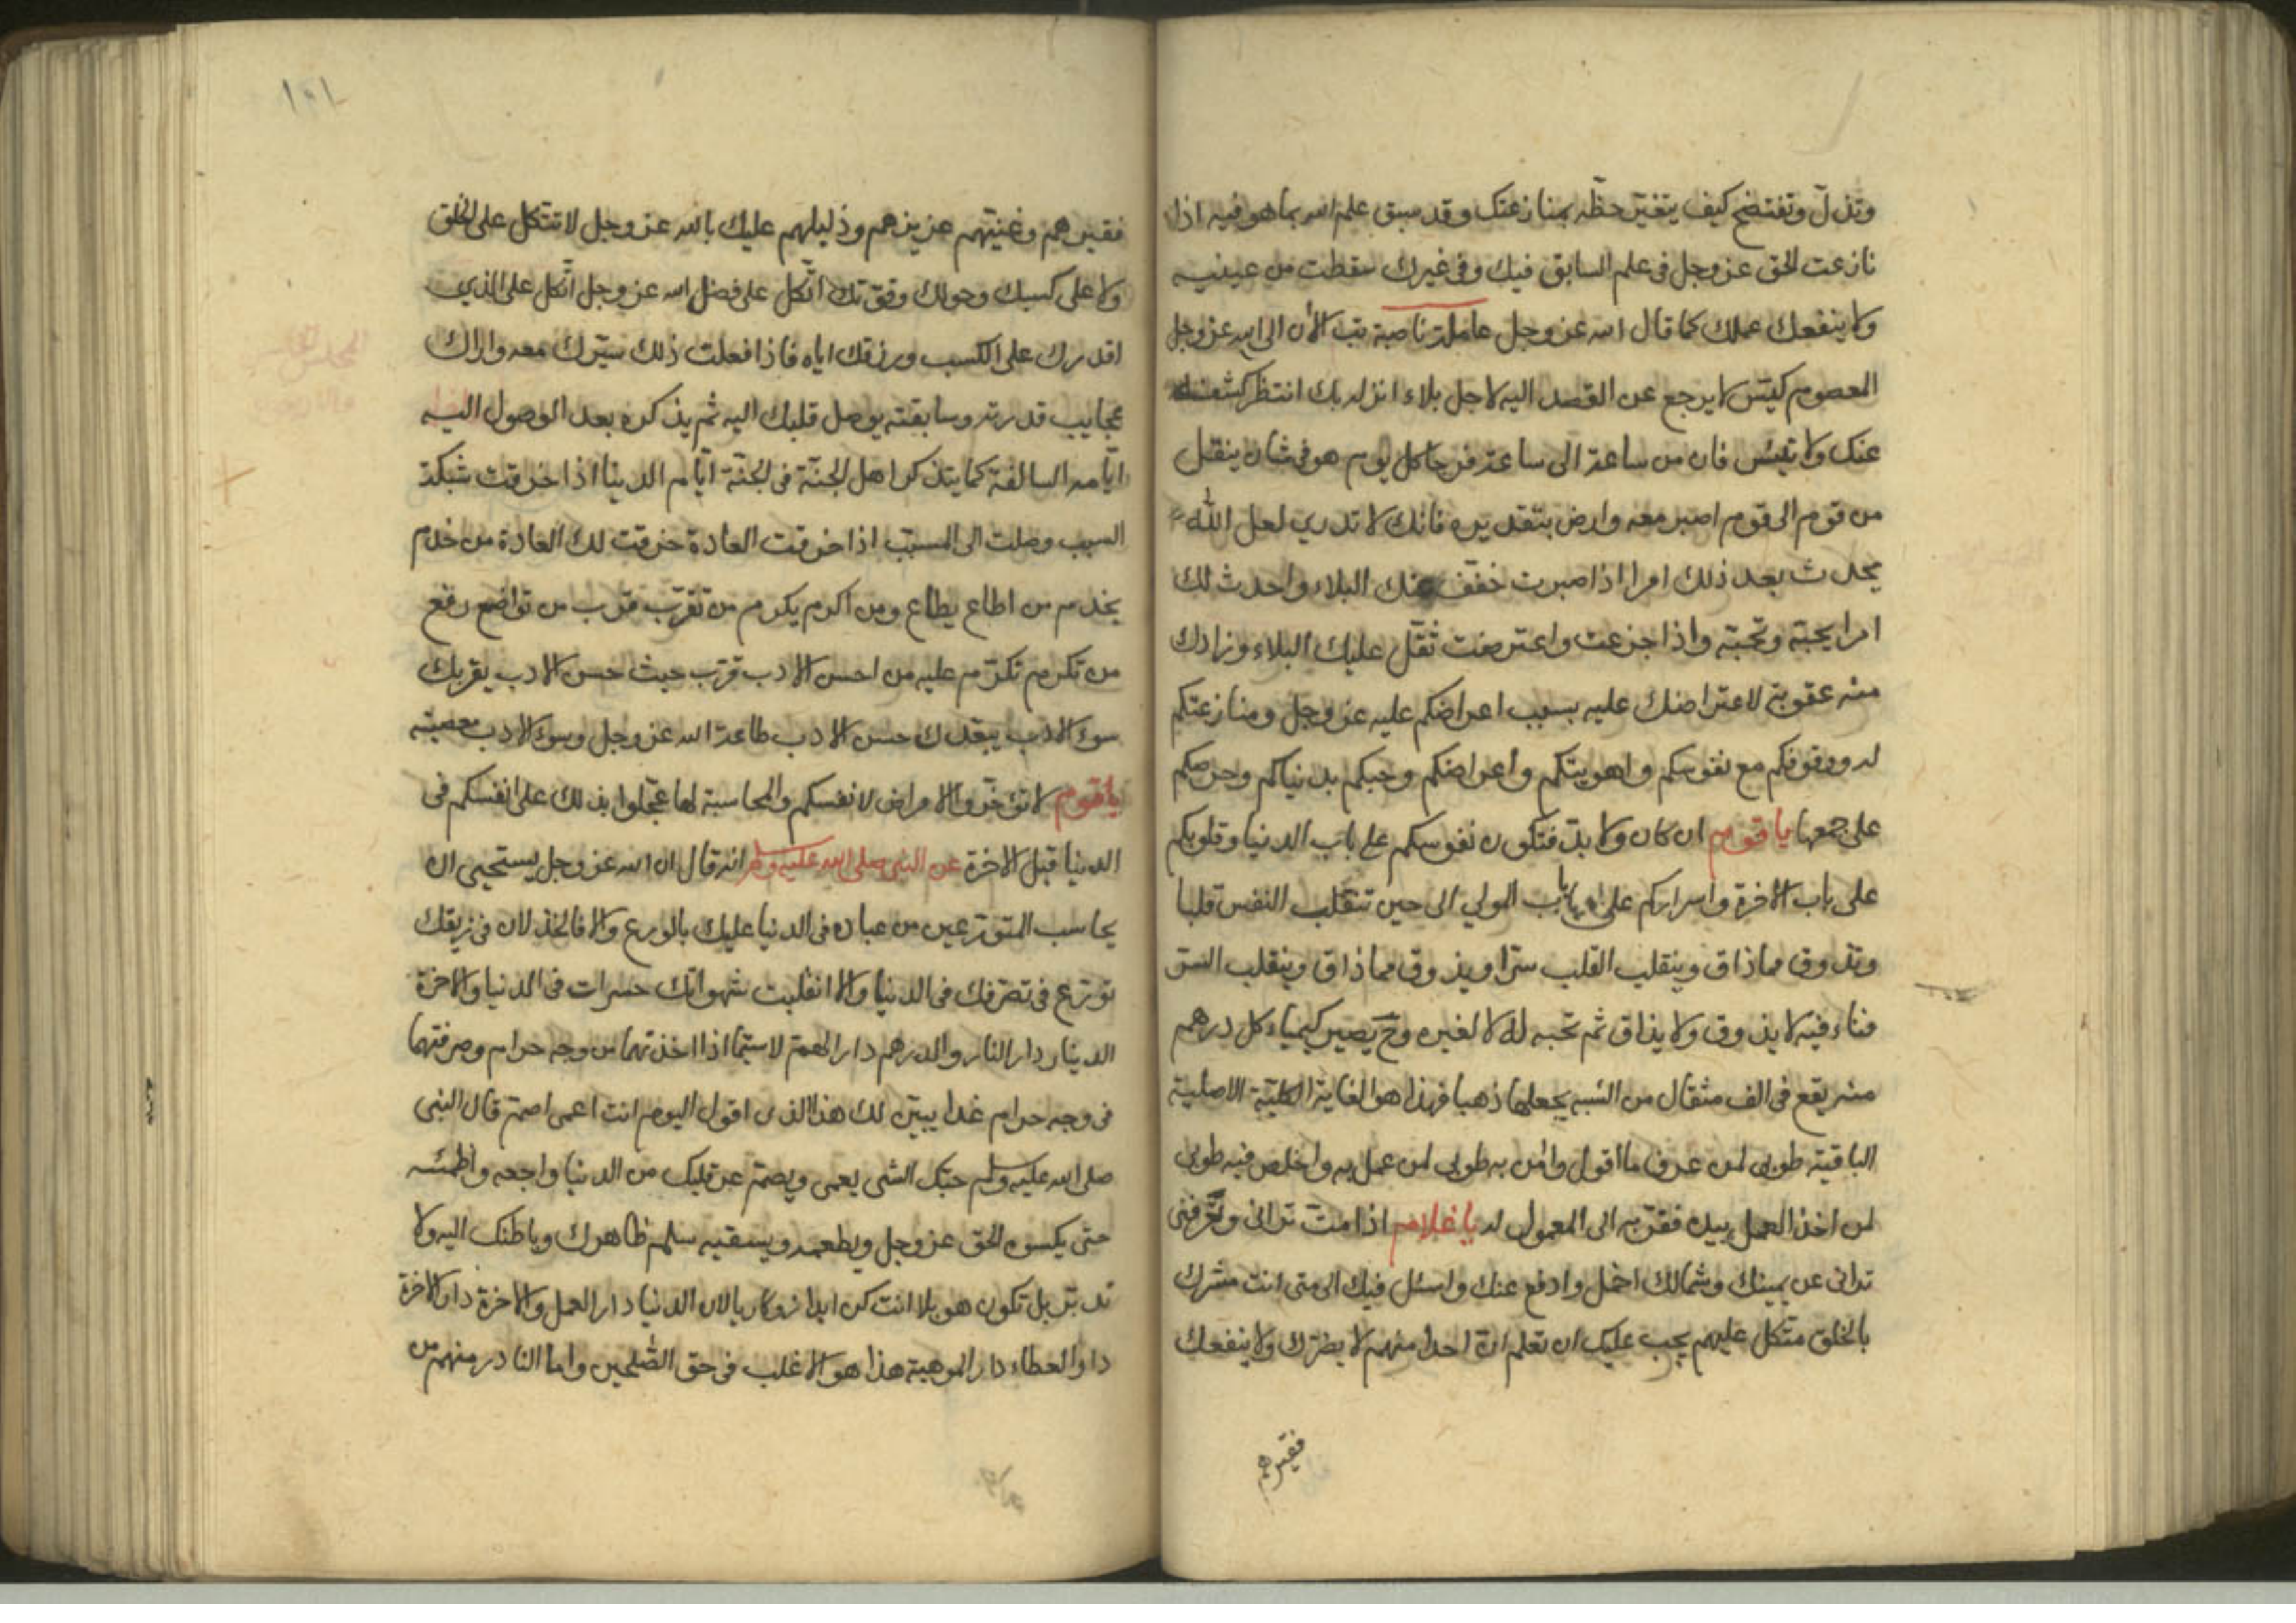 وتذلّ وتفتضح كيف يتغيّر حظّه بمنازعتك وقد سبق علم الله بما هو فيه اذا
نازعت الحق عز وجل فى علم السابق فيك وفى غيرك سقطت من عينيه
ولا ينفعك عملك كما قال الله عز وجل عاملة ناصبة تب الآن الى الله عز وجل
المعصوم كيّس لا يرجع عن القصد اليه لاجل بلاء انزله بك انتظر كشفه
عنك ولا تيئس فان من ساعة الى ساعة فرجا كل يوم هو فى شان ينقل
من قوم الى قوم اصبر معه وارض بتقديره فانك لا تدري لعل الله
يحدث بعد ذلك امرا اذا صبرت خفّف عنك البلاء واحدث لك
امرا يحبّه وتحبّه واذا جزعت واعترضت ثقّل عليك البلاء وزادك
منه عقوبة لاعتراضك عليه بسبب اعراضكم عليه عز وجل ومنازعتكم
له ووقوفكم مع نفوسكم واهويتكم واعراضكم وحبكم بدنياكم وحرصكم
على جمعها يا قوم ان كان ولا بدّ فتكون نفوسكم على باب الدنيا وقلوبكم
على باب الآخرة واسراركم على باب المولي الى حين تنقلب النفس قلبا
وتذوق مماذاق وينقلب القلب سرّا ويذوق مماذاق وينقلب السر
فناء فيه لا يذوق ولا يذاق ثم تحبه له لا لغيره وح يصير كيمياء كل درهم
منه يقع فى الف مثقال من الشبه يجعلها ذهبا فهذا هو الغاية الكليّة الاصلية
الباقية طوبى لمن عرف ما اقول وامن به طوبى لمن عمل به واخلص فيه طوبى
لمن اخذ العمل بيده فقرّبه الى المعمول له يا غلام اذا متّ ترانى وتعرفنى
ترانى عن يمينك وشمالك احمل وادفع عنك واسئل فيك الى متى انت مشرك
بالخلق متّكل عليهم يجب عليك ان تعلم انّ احدا منهم لا يضرّك ولا ينفعك
فقيرهم
فقيرهم وغنيّهم عزيزهم وذليلهم عليك بالله عز وجل لا تتّكل على الخلق
ولا على كسبك وحولك وقوّتك اتّكل على فضل الله عز وجل اتّكل على الذي
اقدرك على الكسب ورزقك اياه فاذا فعلت ذلك سيّرك معه واراك
عجايب قدرته وسابقته يوصل قلبك اليه ثم يذكره بعد الوصول اليه
ايّامه السالفة كما يتذكر اهل الجنّة فى الجنّة ايّام الدنيا اذا خرقت شبكة
السبب وصلت الى المسبّب اذا خرقت العادة خرقت لك العادة من خدم
يخدم من اطاع يطاع ومن اكرم يكرم من تقرّب قرب من تواضع رفع
من تكرم تكرّم عليه من احسن الادب قرّب حيث حسن الادب يقربك
سوء الادب يبعّدك حسن الادب طاعة الله عز وجل وسوء الادب معصيته
يا قوم لا تؤخّروا الامراض لانفسكم والمحاسبة لها عجّلوا بذلك على انفسكم فى
الدنيا قبل الاخرة عن النبى صلى الله عليه وسلم انه قال ان الله عز وجل يستحيى ان
يحاسب المتورّعين من عباده فى الدنيا عليك بالورع والا فالخذلان فى زيقك
تورّع فى تصرّفك فى الدنيا والا انقلبت شهواتك حسرات فى الدنيا والاخرة
الدينار دار النار والدرهم دار الهمّ لا سيّما اذا اخذتهما من وجه حرام وصرفتهما
فى وجه حرام غدا يبيّن لك هذا الذى اقول اليوم انت اعمى اصمّ قال النبى
صلى الله عليه وسلم حبّك الشى يعمى ويصمّ عر قلبك من الدنيا واجعه واظمئه
حتى يكسوه الحق عز وجل ويطعمه ويسقيه سلم ظاهرك وباطنك اليه ولا
تدبّر بل تكون هو بلا انت كن ابدا لان الدنيا دار العمل والاخرة دار الاخرة
دار العطاء دار الموهبة هذا هو الاغلب فى حق الصّلحين واما النادر منهم من